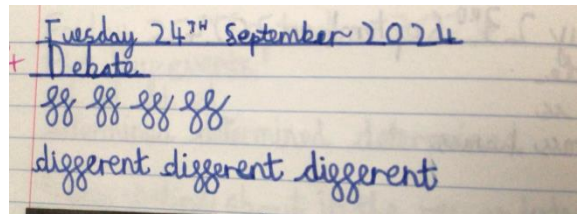 Tuesday 24TH September 2024
Debate
ff ff ff ff
different different different